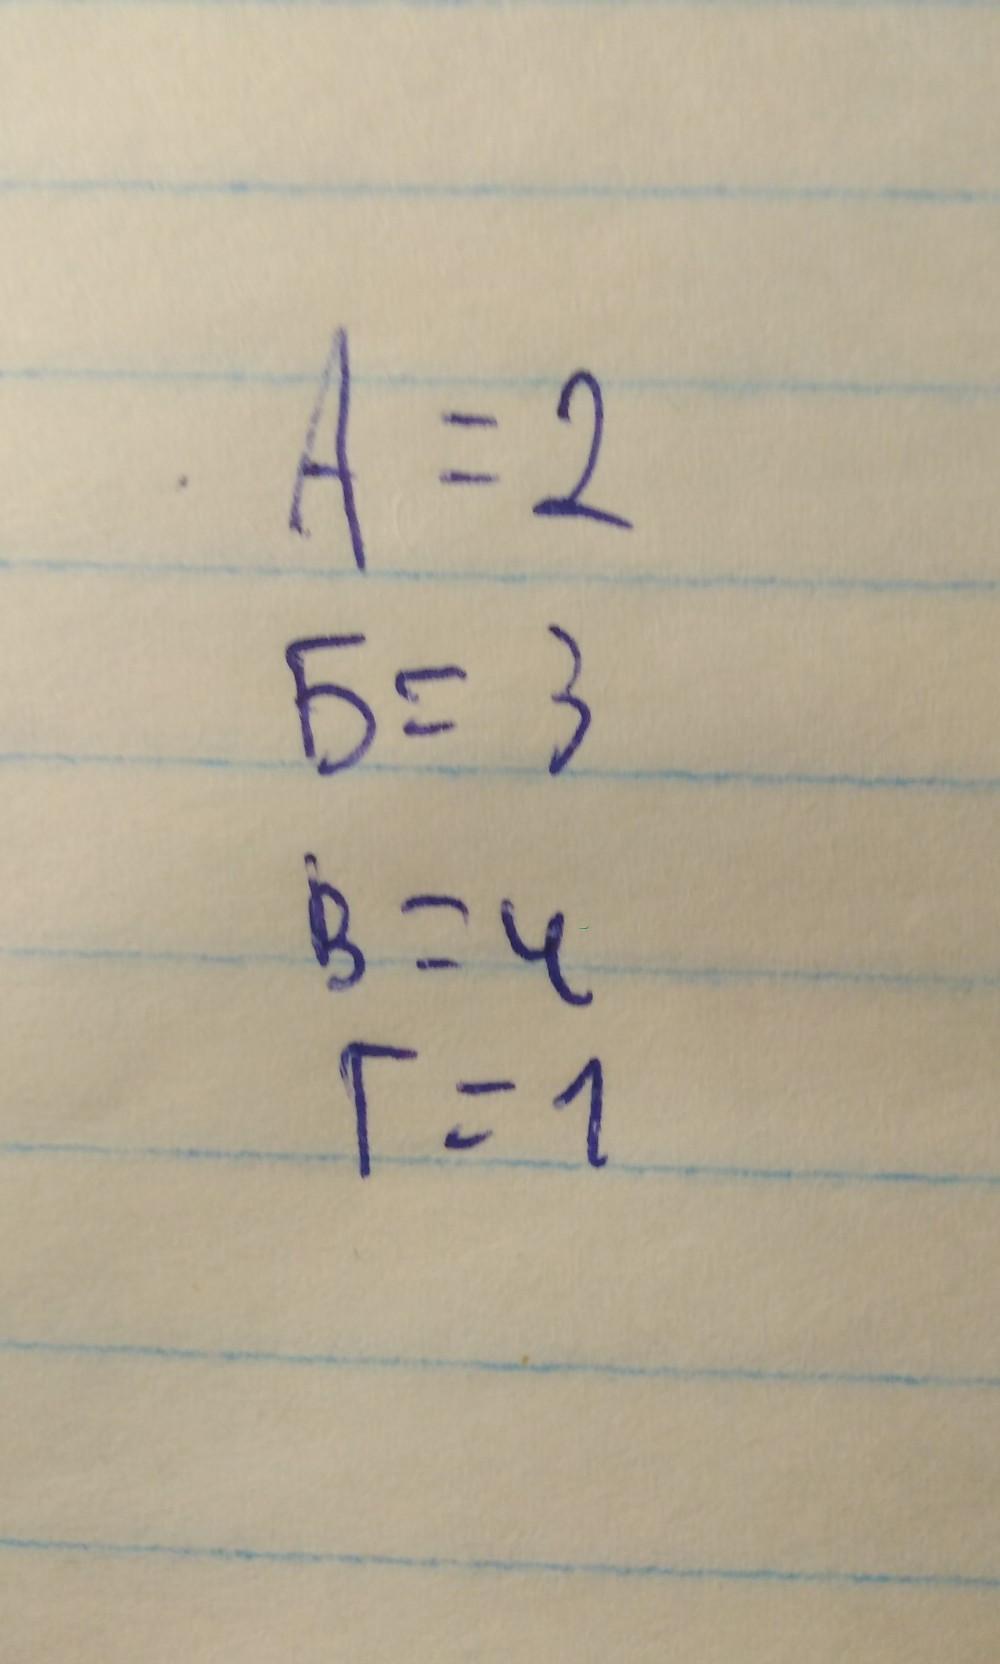 А = 2
Б = 3
В = 4
Г = 1